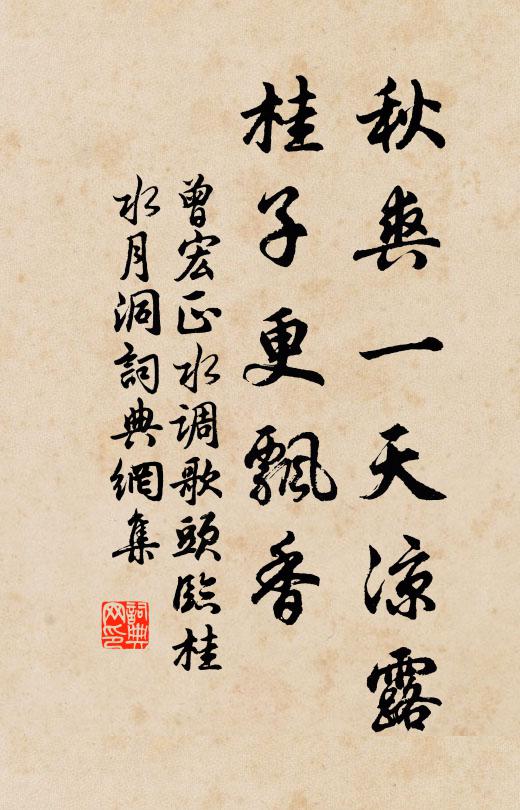 秋爽一天凉露
桂子更飘香
曾宏正水调歌頭臨桂
水月洞詞典網集
詞典网印